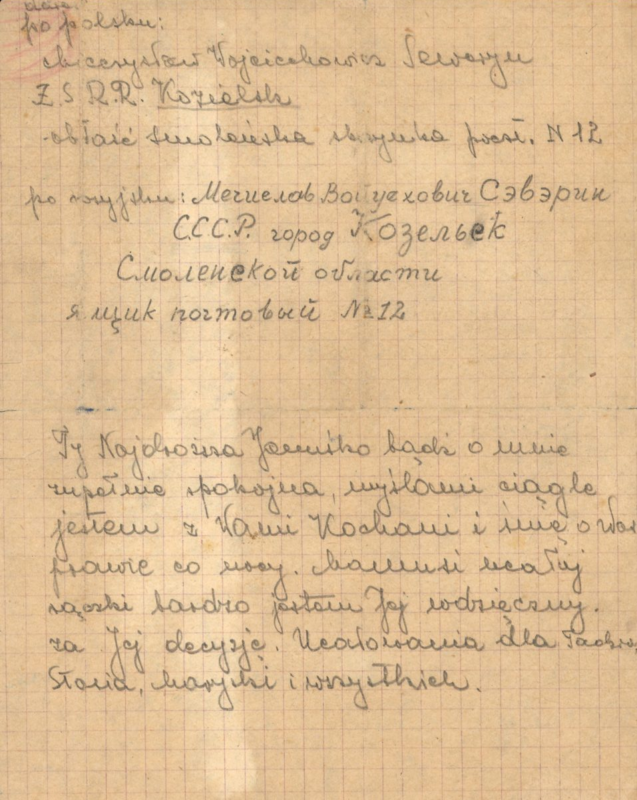 po polsku:
Mieczysław Wojciechowicz Seweryn
Z S R.R. Kozielsk
obłaść Smoleńska skrzynka poczt. N 12
po rosyjsku: Мечислав Войцехович Сэвэрин
С.С.С.Р. город Козельск
Смоленской области
ящик почтовый № 12
Ty Najdroższa Jasieńko bądź o mnie
zupełnie spokojna, myślami ciągle
jestem z Wami Kochani i śnię o Was
prawie co nocy. Mamusi ucałuj
rączki bardzo jestem Jej wdzięczny.
za Jej decyzję. Ucałowania dla
Stasia, Marysi i wszystkich.